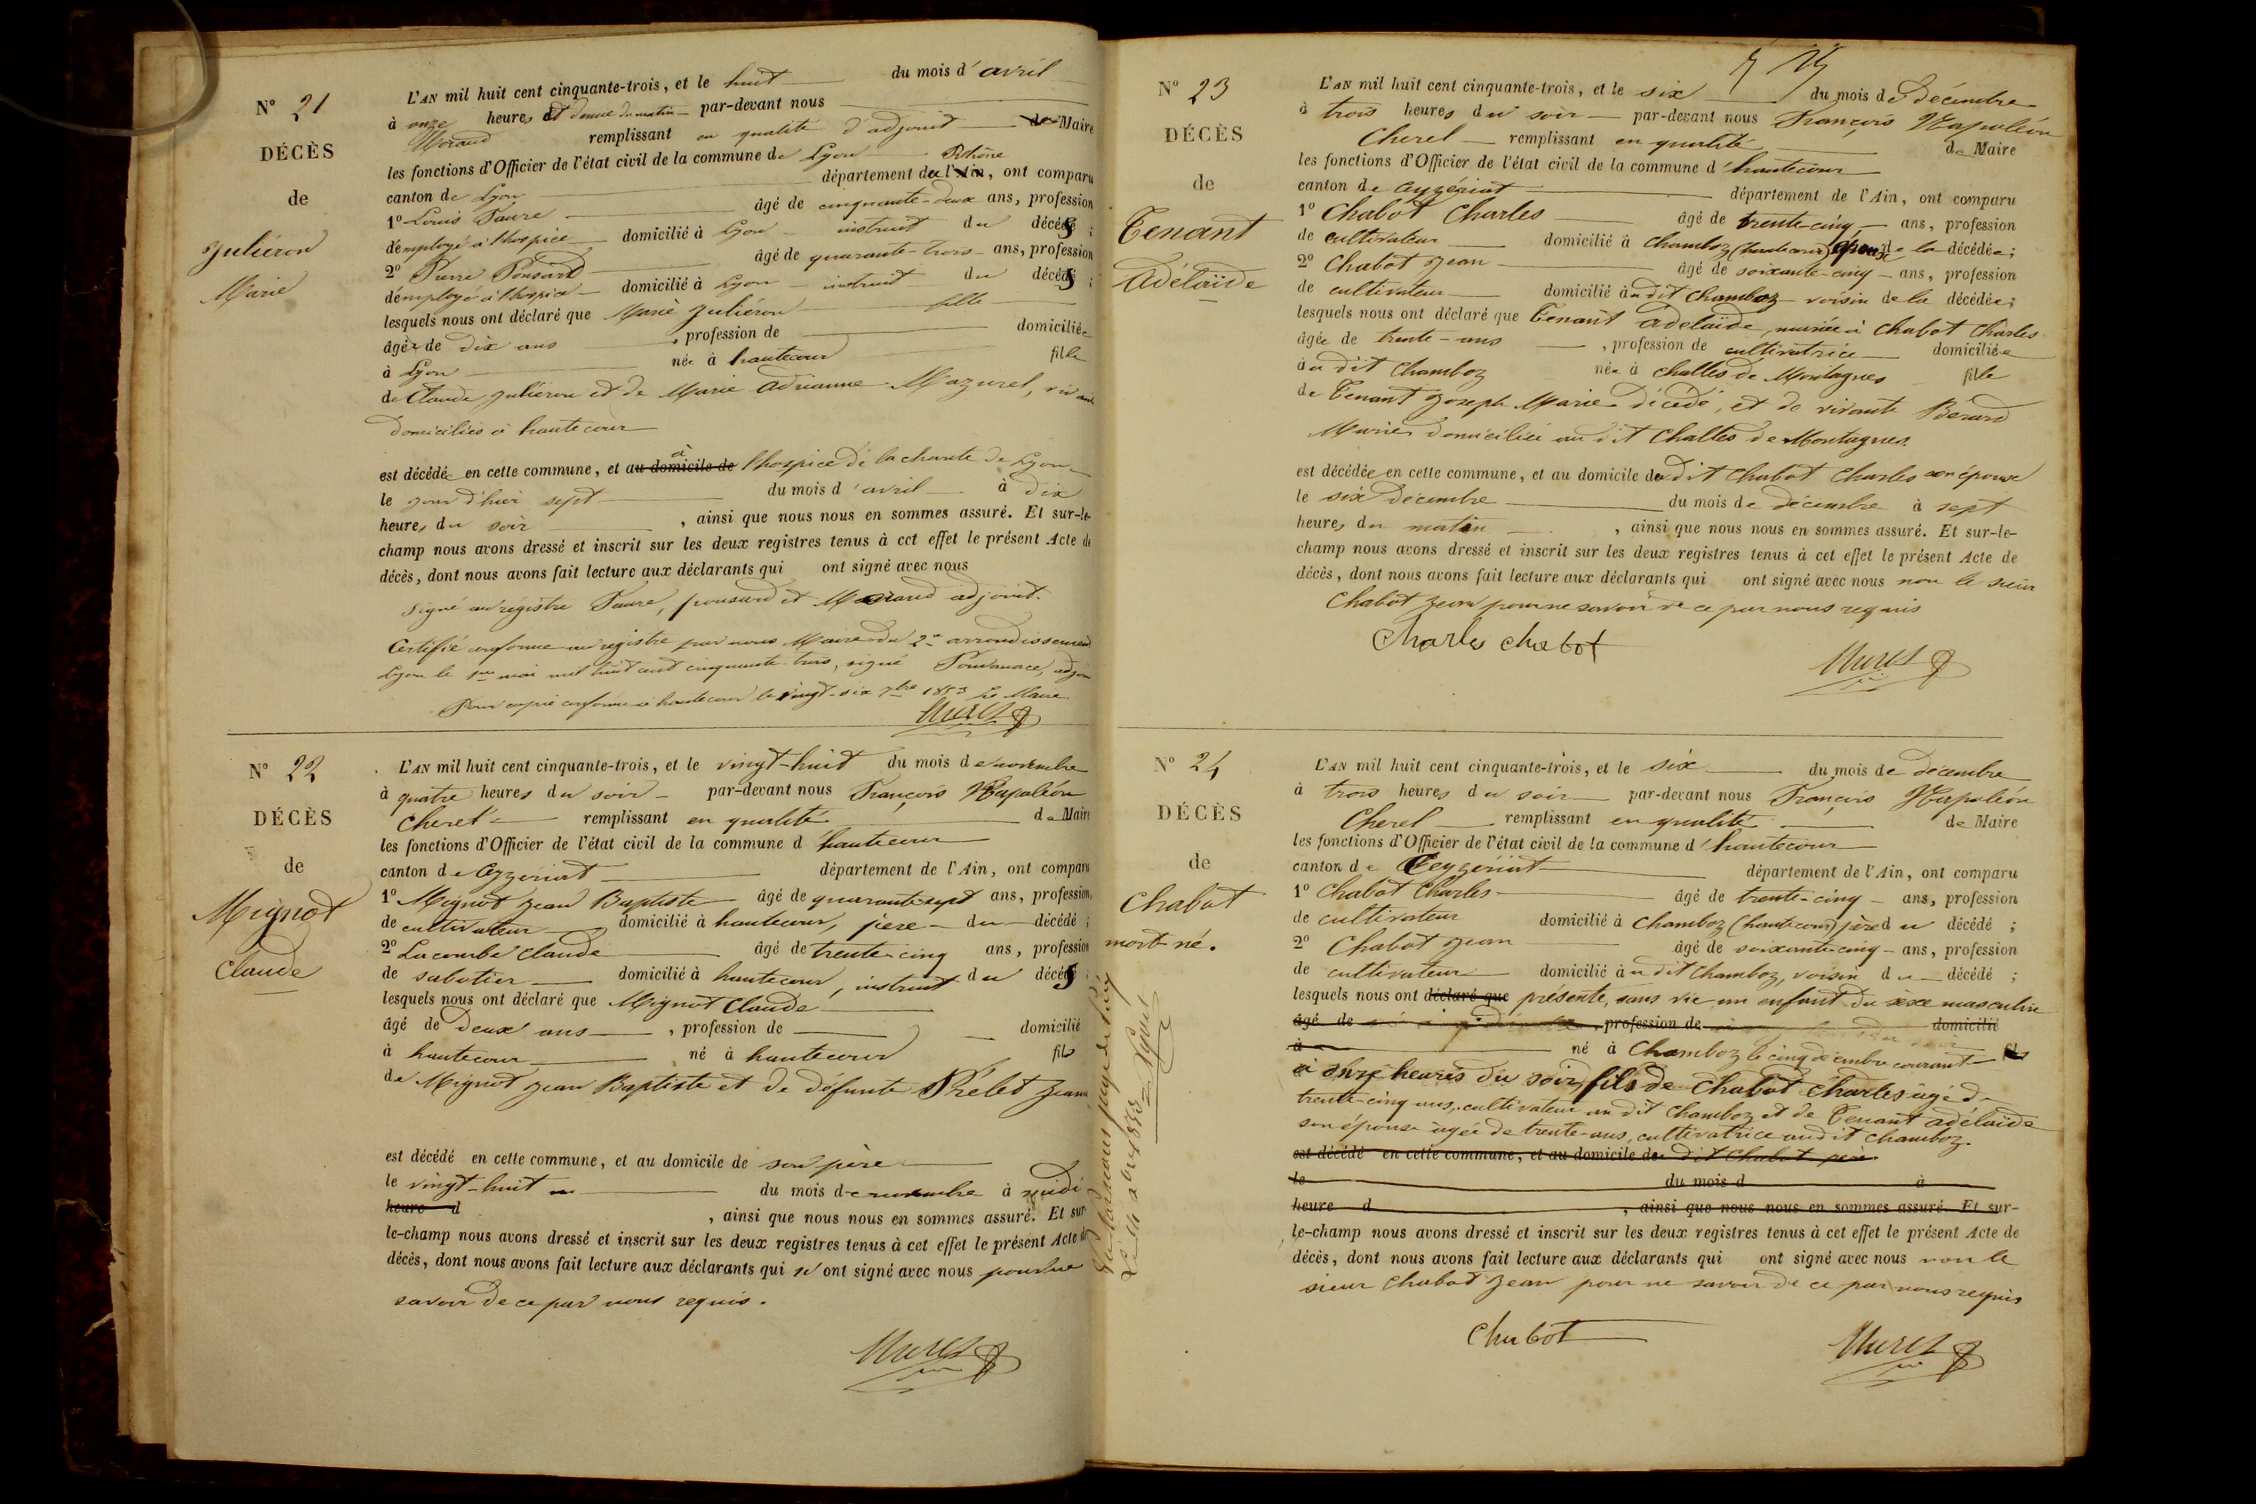 N° 21
DÉCÈS
de
Juliéron
Marie
L'AN mil huit cent cinquante-trois, et le huit du mois d'avril
à onze heures et demie du matin par-devant nous
Morand remplissant en qualité d'adjoint de Maire
les fonctions d'Officier de l'état civil de la commune de Lyon Rhône
canton de Lyon département de l'Ain, ont comparu
1° Louis Faure âgé de cinquante-deux ans, profession
d'employé à l'hospice domicilié à Lyon instruit du décès ;
2° Pierre Ponsard âgé de quarante-trois ans, profession
d'employé à l'hospice domicilié à Lyon instruit du décès ;
lesquels nous ont déclaré que Marie Juliéron fille
âgée de dix ans , profession de domiciliée
à Lyon née à hautecour fille
de Claude Juliéron et de Marie Adrianne Mazurel, vivants
domiciliés à hautecour
est décédée en cette commune, et au domicile de à l'hospice de la charité de Lyon
le jour d'hier sept du mois d'avril à dix
heures du soir , ainsi que nous nous en sommes assuré. Et sur-le-
champ nous avons dressé et inscrit sur les deux registres tenus à cet effet le présent Acte de
décès, dont nous avons fait lecture aux déclarants qui ont signé avec nous
signé au registre Faure, ponsard et Morand adjoint.
Certifié conforme au registre par nous Maire du 2e arrondissement
Lyon le mai mil huit cent cinquante-trois, signé adjoint
Pour copie conforme à hautecour le vingt-six 7bre 1853 Le Maire
N° 22
DÉCÈS
de
Mignot
Claude
L'AN mil huit cent cinquante-trois, et le vingt-huit du mois de novembre
à quatre heures du soir par-devant nous François Napoléon
Cherel remplissant en qualité de Maire
les fonctions d'Officier de l'état civil de la commune d'hautecour
canton de Ceyzeriat département de l'Ain, ont comparu
1° Mignot Jean Baptiste âgé de quarante-sept ans, profession
de cultivateur domicilié à hautecour, père du décédé ;
2° Lacombe Claude âgé de trente-cinq ans, profession
de sabotier domicilié à hautecour, instruit du décès ;
lesquels nous ont déclaré que Mignot Claude
âgé de deux ans , profession de domicilié
à hautecour né à hautecour fils
de Mignot Jean Baptiste et de défunte Prélet Jeanne
est décédé en cette commune, et au domicile de son père
le vingt-huit du mois de novembre à midi
heure d , ainsi que nous nous en sommes assuré. Et sur-
le-champ nous avons dressé et inscrit sur les deux registres tenus à cet effet le présent Acte de
décès, dont nous avons fait lecture aux déclarants qui n'ont signé avec nous pour ne
savoir de ce par nous requis.
N° 23
DÉCÈS
de
Tenant
Adélaïde
L'AN mil huit cent cinquante-trois, et le six du mois de décembre
à trois heures du soir par-devant nous François Napoléon
Cherel remplissant en qualité de Maire
les fonctions d'Officier de l'état civil de la commune d'hautecour
canton de Ceyzériat département de l'Ain, ont comparu
1° Chabot Charles âgé de trente-cinq ans, profession
de cultivateur domicilié à Chamboz (hautecour) époux de la décédée ;
2° Chabot Jean âgé de soixante-cinq ans, profession
de cultivateur domicilié au dit Chamboz voisin de la décédée ;
lesquels nous ont déclaré que Tenant adelaïde, mariée à Chabot Charles
âgée de trente-ans , profession de cultivatrice domiciliée
au dit Chamboz née à Challes de Montagnes fille
de Tenant Joseph Marie décédé, et de vivante Bérard
Marie domiciliée au dit Challes de Montagnes
est décédée en cette commune, et au domicile du dit Chabot Charles son époux
le six décembre du mois de décembre à sept
heures du matin , ainsi que nous nous en sommes assuré. Et sur-le-
champ nous avons dressé et inscrit sur les deux registres tenus à cet effet le présent Acte de
décès, dont nous avons fait lecture aux déclarants qui ont signé avec nous non le sieur
Chabot Jean pour ne savoir de ce par nous requis
Charles Chabot
N° 24
DÉCÈS
de
Chabot
mort né.
L'AN mil huit cent cinquante-trois, et le six du mois de décembre
à trois heures du soir par-devant nous François Napoléon
Cherel remplissant en qualité de Maire
les fonctions d'Officier de l'état civil de la commune d'hautecour
canton de Ceyzériat département de l'Ain, ont comparu
1° Chabot Charles âgé de trente-cinq ans, profession
de cultivateur domicilié à Chamboz (hautecour) père du décédé ;
2° Chabot Jean âgé de soixante-cinq ans, profession
de cultivateur domicilié au dit Chamboz, voisin du décédé ;
lesquels nous ont déclaré que présenté, sans vie un enfant du sexe masculin
âgé de , profession de domicilié
à né à Chamboz le cinq décembre courant fils
à onze heures du soir, fils de Chabot Charles âgé de
trente-cinq ans, cultivateur au dit Chamboz et de Tenant adélaïde
son épouse âgée de trente-ans, cultivatrice au dit Chamboz.
est décédé en cette commune, et au domicile du dit Chabot père
le du mois d à
heure d , ainsi que nous nous en sommes assuré. Et sur-
le-champ nous avons dressé et inscrit sur les deux registres tenus à cet effet le présent Acte de
décès, dont nous avons fait lecture aux déclarants qui ont signé avec nous non le
sieur Chabot Jean pour ne savoir de ce par nous requis
Chabot